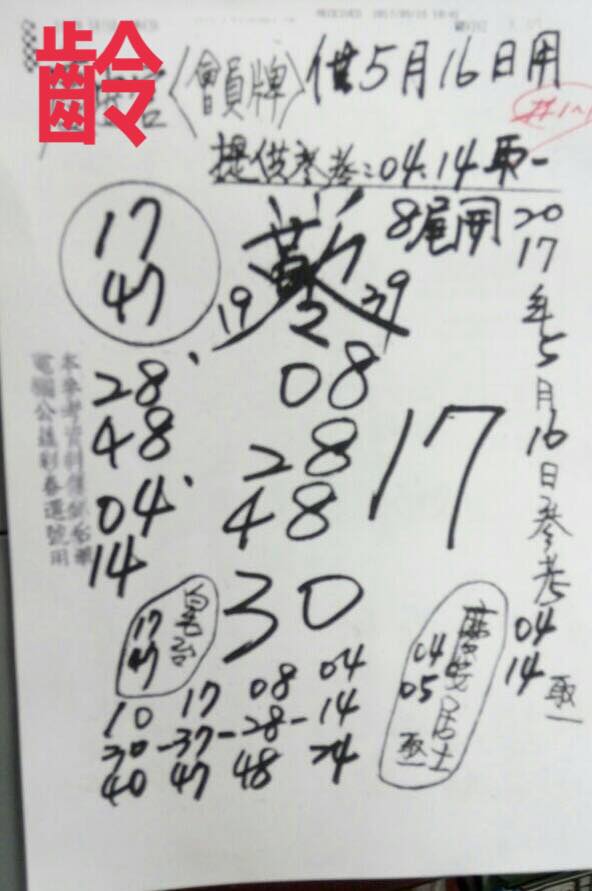 齡
〈會員牌〉供5月16日用
提供參考：04.14取一
17
47
8尾開
19
39
28、
48
04、
14
08
28
48
30
17
2017年5月16日參考
04
14取一
本參考資料僅供
電腦公益彩券選號用
17
47
04
05
取一
居士
10 17 08 04
30-37-28-14
40 47 48 24